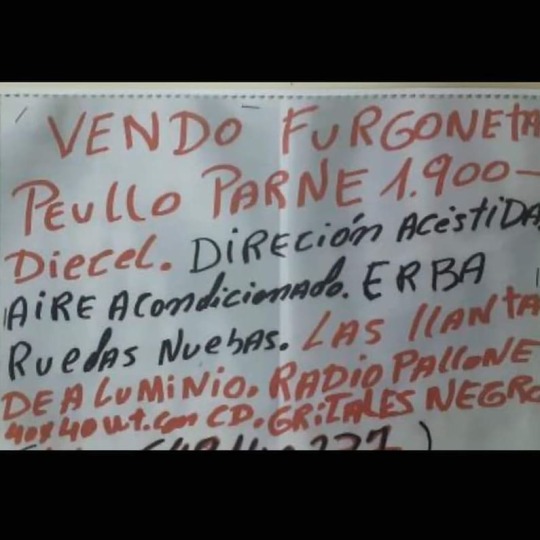 VENDO FURGONEtA
PEULLO PARNE 1.900-
Diecel. DiRECIÓN AcéstiDA
AiRE Acondicionado. ERBA
RuedAs NuebAs. LAS llANtA
DE A LuMiNiO. RADiO PALLONE
40x40 wt. con CD. GRitALES NEGRO